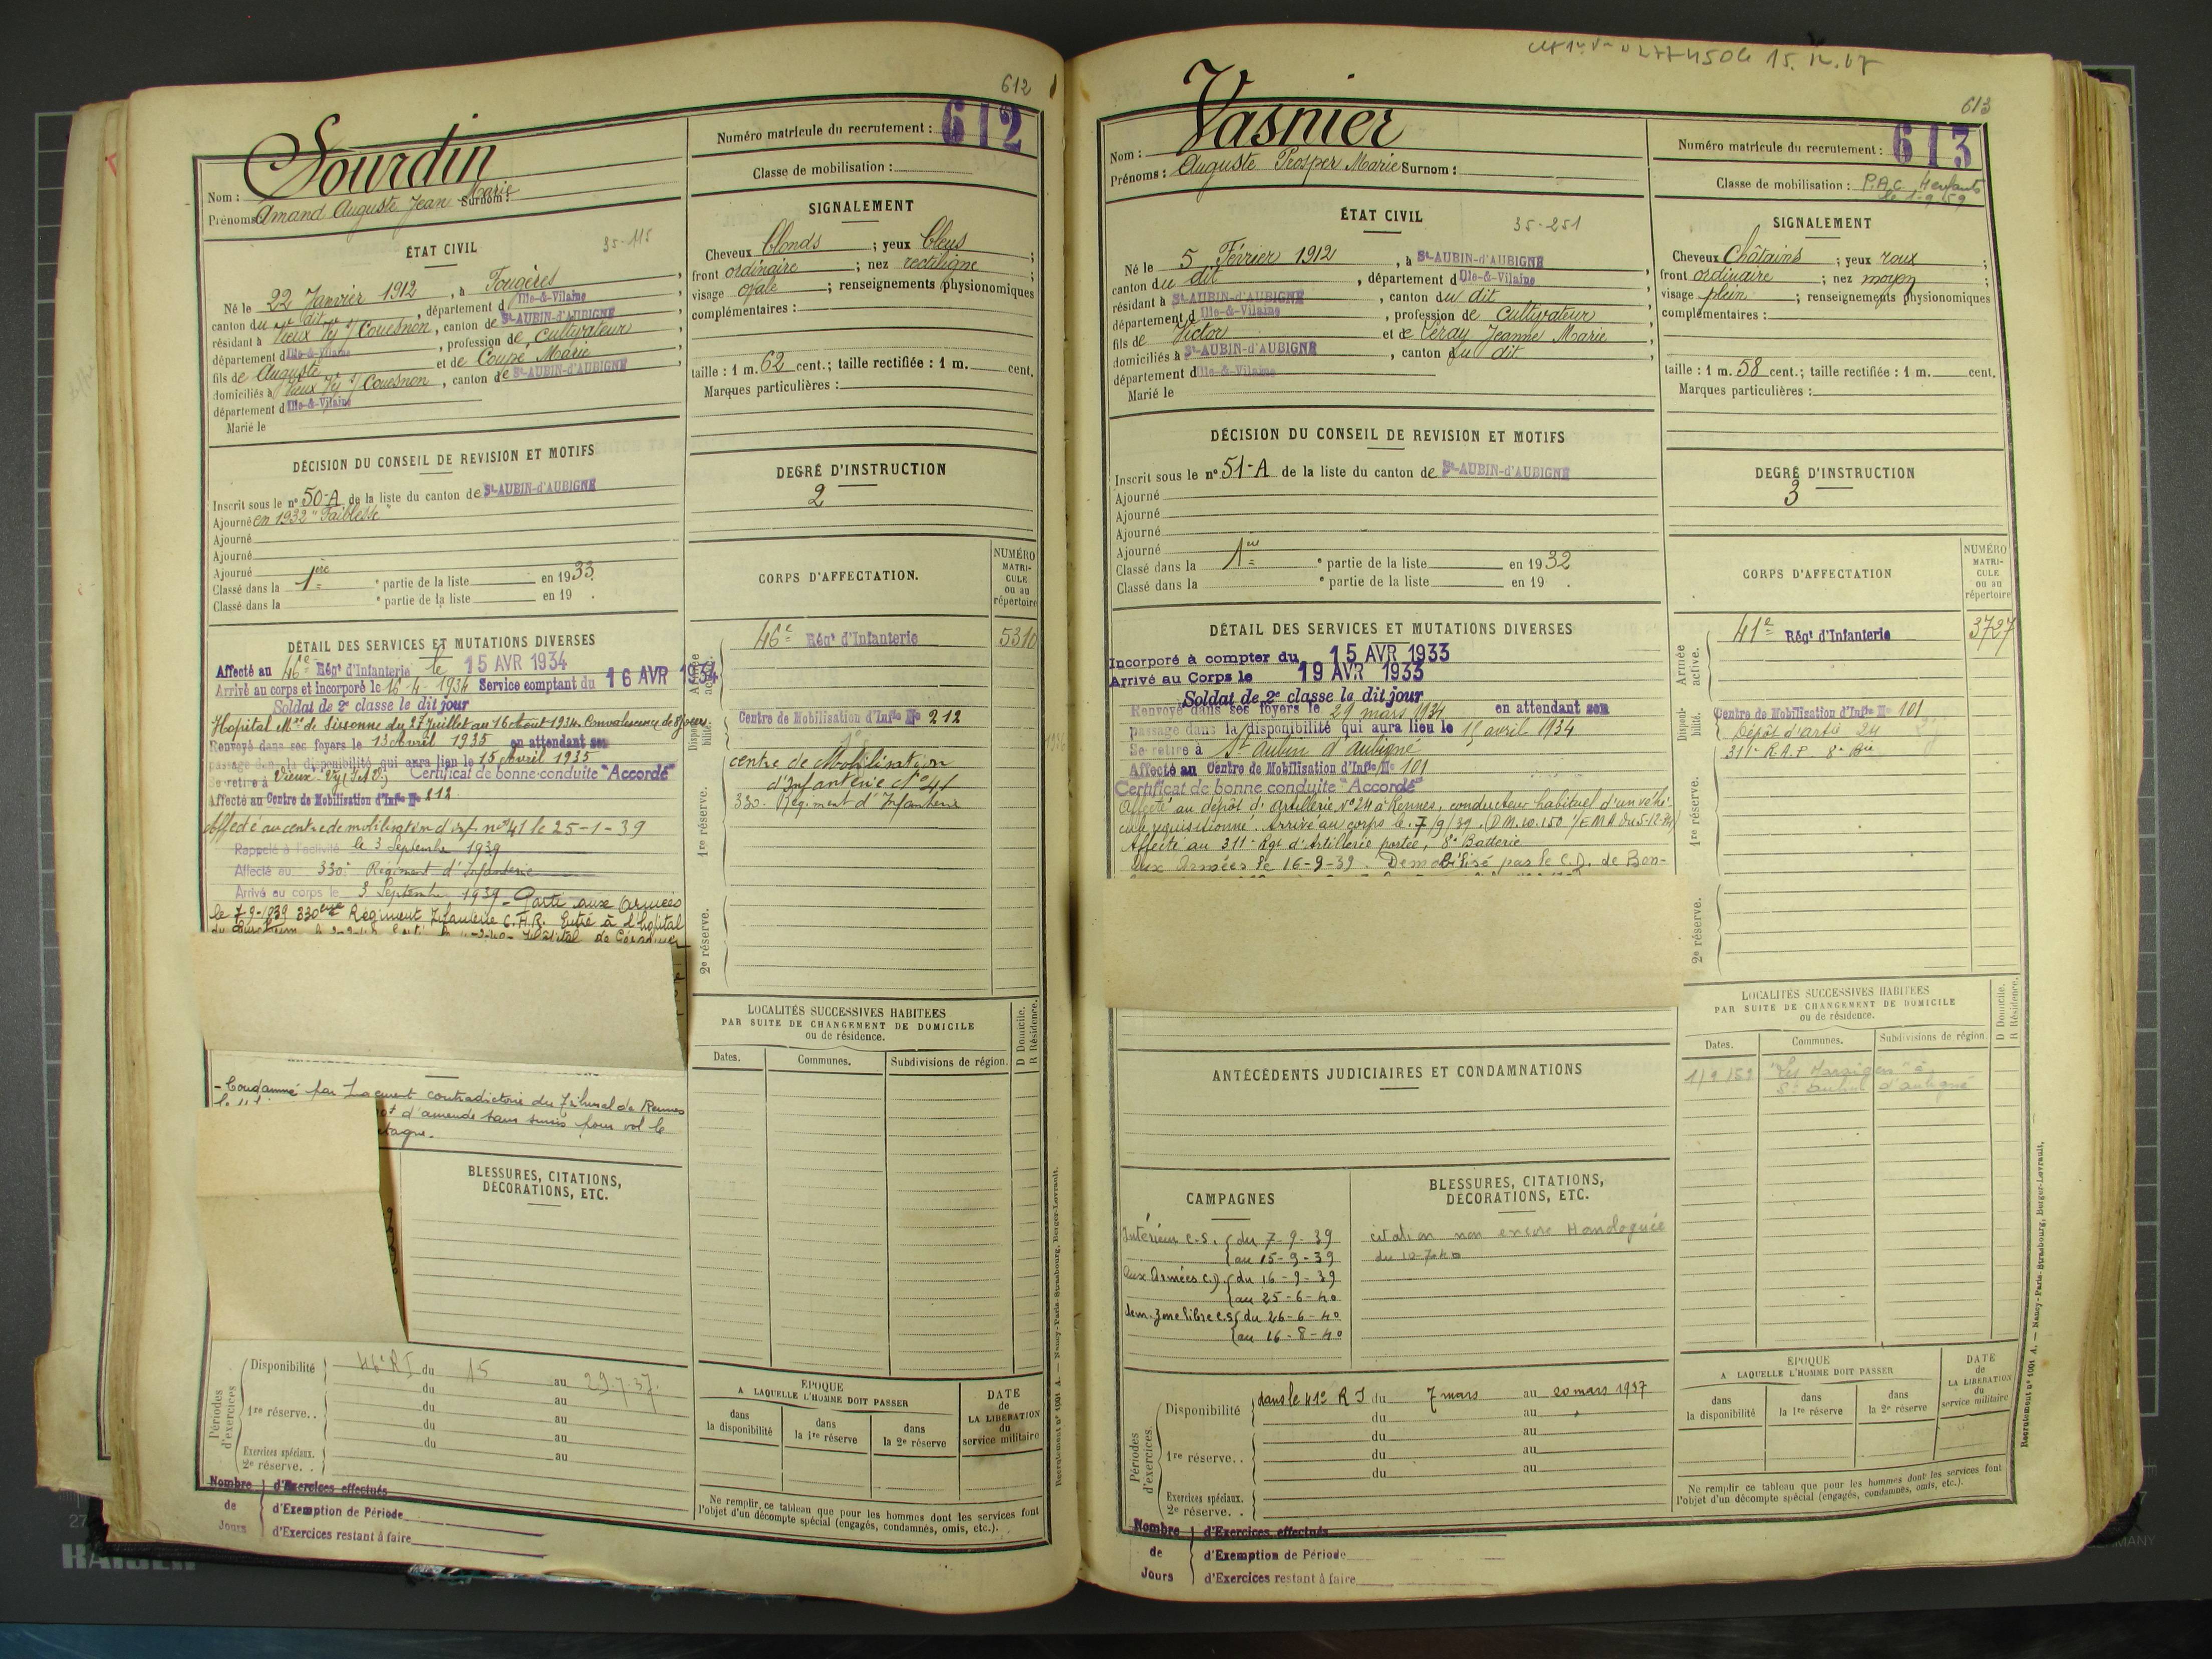 612
Sourdin
Nom :
Prénoms : Amand Auguste Jean Marie Surnom :
Numéro matricule du recrutement : 612
Classe de mobilisation :
ÉTAT CIVIL
35-115
Né le 22 Janvier 1912, à Fougères,
canton du dit, département d Ille-&-Vilaine,
résidant à Vieux Vy s/ Couesnon, canton de St-AUBIN-d'AUBIGNÉ,
département d Ille-&-Vilaine, profession de cultivateur
fils de Auguste et de Coupé Marie,
domiciliés à Vieux Vy s/ Couesnon, canton de St-AUBIN-d'AUBIGNÉ,
département d Ille-&-Vilaine
Marié le
SIGNALEMENT
Cheveux blonds ; yeux bleus ;
front ordinaire ; nez rectiligne ;
visage ovale ; renseignements physionomiques
complémentaires :
taille : 1 m. 62 cent.; taille rectifiée : 1 m. cent.
Marques particulières :
DÉCISION DU CONSEIL DE REVISION ET MOTIFS
Inscrit sous le n° 50-A de la liste du canton de St-AUBIN-d'AUBIGNÉ
Ajourné en 1932 "Faiblesse"
Ajourné
Ajourné
Ajourné
Classé dans la 1ère partie de la liste en 1933.
Classé dans la e partie de la liste en 19 .
DEGRÉ D'INSTRUCTION
2
DÉTAIL DES SERVICES ET MUTATIONS DIVERSES
Affecté au 46e Régt d'Infanterie le 15 AVR 1934
Arrivé au corps et incorporé le 16-4-1934 Service comptant du 16 AVR 1934
Soldat de 2e classe le dit jour
Hopital Mre de Sissonne du 27 Juillet au 16 Août 1934. Convalescence de 8 jours.
Renvoyé dans ses foyers le 13 Avril 1935 en attendant son
passage dans la disponibilité qui aura lieu le 15 Avril 1935
Se retire à Vieux-Vy (I.&V.) Certificat de bonne conduite "Accordé"
Affecté au Centre de Mobilisation d'Infie N° 212.
Affecté au centre de mobilisation d'inf. n° 41 le 25-1-39
Rappelé à l'activité le 3 Septembre 1939
Affecté au 330e Régiment d'Infanterie
Arrivé au corps le 3 Septembre 1939 - Parti aux Armées
le 7-9-1939 330eme Régiment Infanterie C.H.R. Entré à l'hopital
- Condamné par Jugement contradictoire du Tribunal de Rennes
d'amende sans sursis pour vol le
CORPS D'AFFECTATION.
NUMÉRO MATRICULE ou au répertoire
Armée active.
46e Régt d'Infanterie 5310
Disponibilité.
Centre de Mobilisation d'Infie N° 212
1re réserve.
centre de Mobilisation
d'Infanterie N° 41
330e Régiment d'Infanterie
2e réserve.
LOCALITÉS SUCCESSIVES HABITÉES
PAR SUITE DE CHANGEMENT DE DOMICILE
ou de résidence.
D Domicile.
R Résidence.
Dates. Communes. Subdivisions de région.
BLESSURES, CITATIONS,
DÉCORATIONS, ETC.
Périodes d'exercices
Disponibilité 46e RI du 15 au 29-7-37.
du au
1re réserve. . du au
du au
du au
Exercices spéciaux.
2e réserve. . au
Nombre de Jours
d'Exercices effectués
d'Exemption de Période
d'Exercices restant à faire
ÉPOQUE
A LAQUELLE L'HOMME DOIT PASSER
dans la disponibilité
dans la 1re réserve
dans la 2e réserve
DATE de LA LIBÉRATION du service militaire
Ne remplir ce tableau que pour les hommes dont les services font
l'objet d'un décompte spécial (engagés, condamnés, omis, etc.).
Recrutement n° 1001 A. — Nancy-Paris-Strasbourg, Berger-Levrault.
15.12.67
613
Vasnier
Nom :
Prénoms : Auguste Prosper Marie Surnom :
Numéro matricule du recrutement : 613
Classe de mobilisation : P.A.C. 4 enfants
le 1-9-59
ÉTAT CIVIL
35-251
Né le 5 Février 1912, à St-AUBIN-d'AUBIGNÉ,
canton du dit, département d Ille-&-Vilaine,
résidant à St-AUBIN-d'AUBIGNÉ, canton du dit,
département d Ille-&-Vilaine, profession de cultivateur
fils de Victor et de Leray Jeanne Marie,
domiciliés à St-AUBIN-d'AUBIGNÉ, canton du dit,
département d Ille-&-Vilaine
Marié le
SIGNALEMENT
Cheveux châtains ; yeux roux ;
front ordinaire ; nez moyen ;
visage plein ; renseignements physionomiques
complémentaires :
taille : 1 m. 58 cent.; taille rectifiée : 1 m. cent.
Marques particulières :
DÉCISION DU CONSEIL DE REVISION ET MOTIFS
Inscrit sous le n° 51-A de la liste du canton de St-AUBIN-d'AUBIGNÉ
Ajourné
Ajourné
Ajourné
Ajourné
Classé dans la 1ère partie de la liste en 1932
Classé dans la e partie de la liste en 19 .
DEGRÉ D'INSTRUCTION
3
DÉTAIL DES SERVICES ET MUTATIONS DIVERSES
Incorporé à compter du 15 AVR 1933
Arrivé au Corps le 19 AVR 1933
Soldat de 2e classe le dit jour
Renvoyé dans ses foyers le 29 mars 1934 en attendant son
passage dans la disponibilité qui aura lieu le 15 avril 1934
Se retire à St Aubin d'Aubigné
Affecté au Centre de Mobilisation d'Infie N° 101
Certificat de bonne conduite "Accordé"
Affecté au dépôt d'artillerie N° 24 à Rennes, conducteur habituel d'un véhi-
cule réquisitionné. Arrivé au corps le 7/9/39.
Affecté au 311e Rgt d'Artillerie portée, 8e Batterie
aux Armées le 16-9-39. Démobilisé par le C.D. de Bon-
CORPS D'AFFECTATION
NUMÉRO MATRICULE ou au répertoire
Armée active.
41e Régt d'Infanterie 3727
Disponibilité.
Centre de Mobilisation d'Infie N° 101
Dépôt d'artie 24
311e R.A.P. 8e Bie
1re réserve.
2e réserve.
LOCALITÉS SUCCESSIVES HABITÉES
PAR SUITE DE CHANGEMENT DE DOMICILE
ou de résidence.
D Domicile.
R Résidence.
Dates. Communes. Subdivisions de région
St Aubin d'aubigné
ANTÉCÉDENTS JUDICIAIRES ET CONDAMNATIONS
CAMPAGNES
Intérieur C.S. du 7-9-39
au 15-9-39
Aux Armées C.D. du 16-9-39
au 25-6-40
Dem. Zone libre C.S. du 26-6-40
au 16-8-40
BLESSURES, CITATIONS,
DÉCORATIONS, ETC.
citation non encore Homologuée
du 10-7-40
Périodes d'exercices
Disponibilité dans le 41e R I du 7 mars au 20 mars 1937
du au
du au
1re réserve. . du au
du au
Exercices spéciaux.
2e réserve. .
Nombre de Jours
d'Exercices effectués
d'Exemption de Période
d'Exercices restant à faire
ÉPOQUE
A LAQUELLE L'HOMME DOIT PASSER
dans la disponibilité
dans la 1re réserve
dans la 2e réserve
DATE de LA LIBÉRATION du service militaire
Ne remplir ce tableau que pour les hommes dont les services font
l'objet d'un décompte spécial (engagés, condamnés, omis, etc.).
Recrutement n° 1001 A. — Nancy-Paris-Strasbourg, Berger-Levrault.